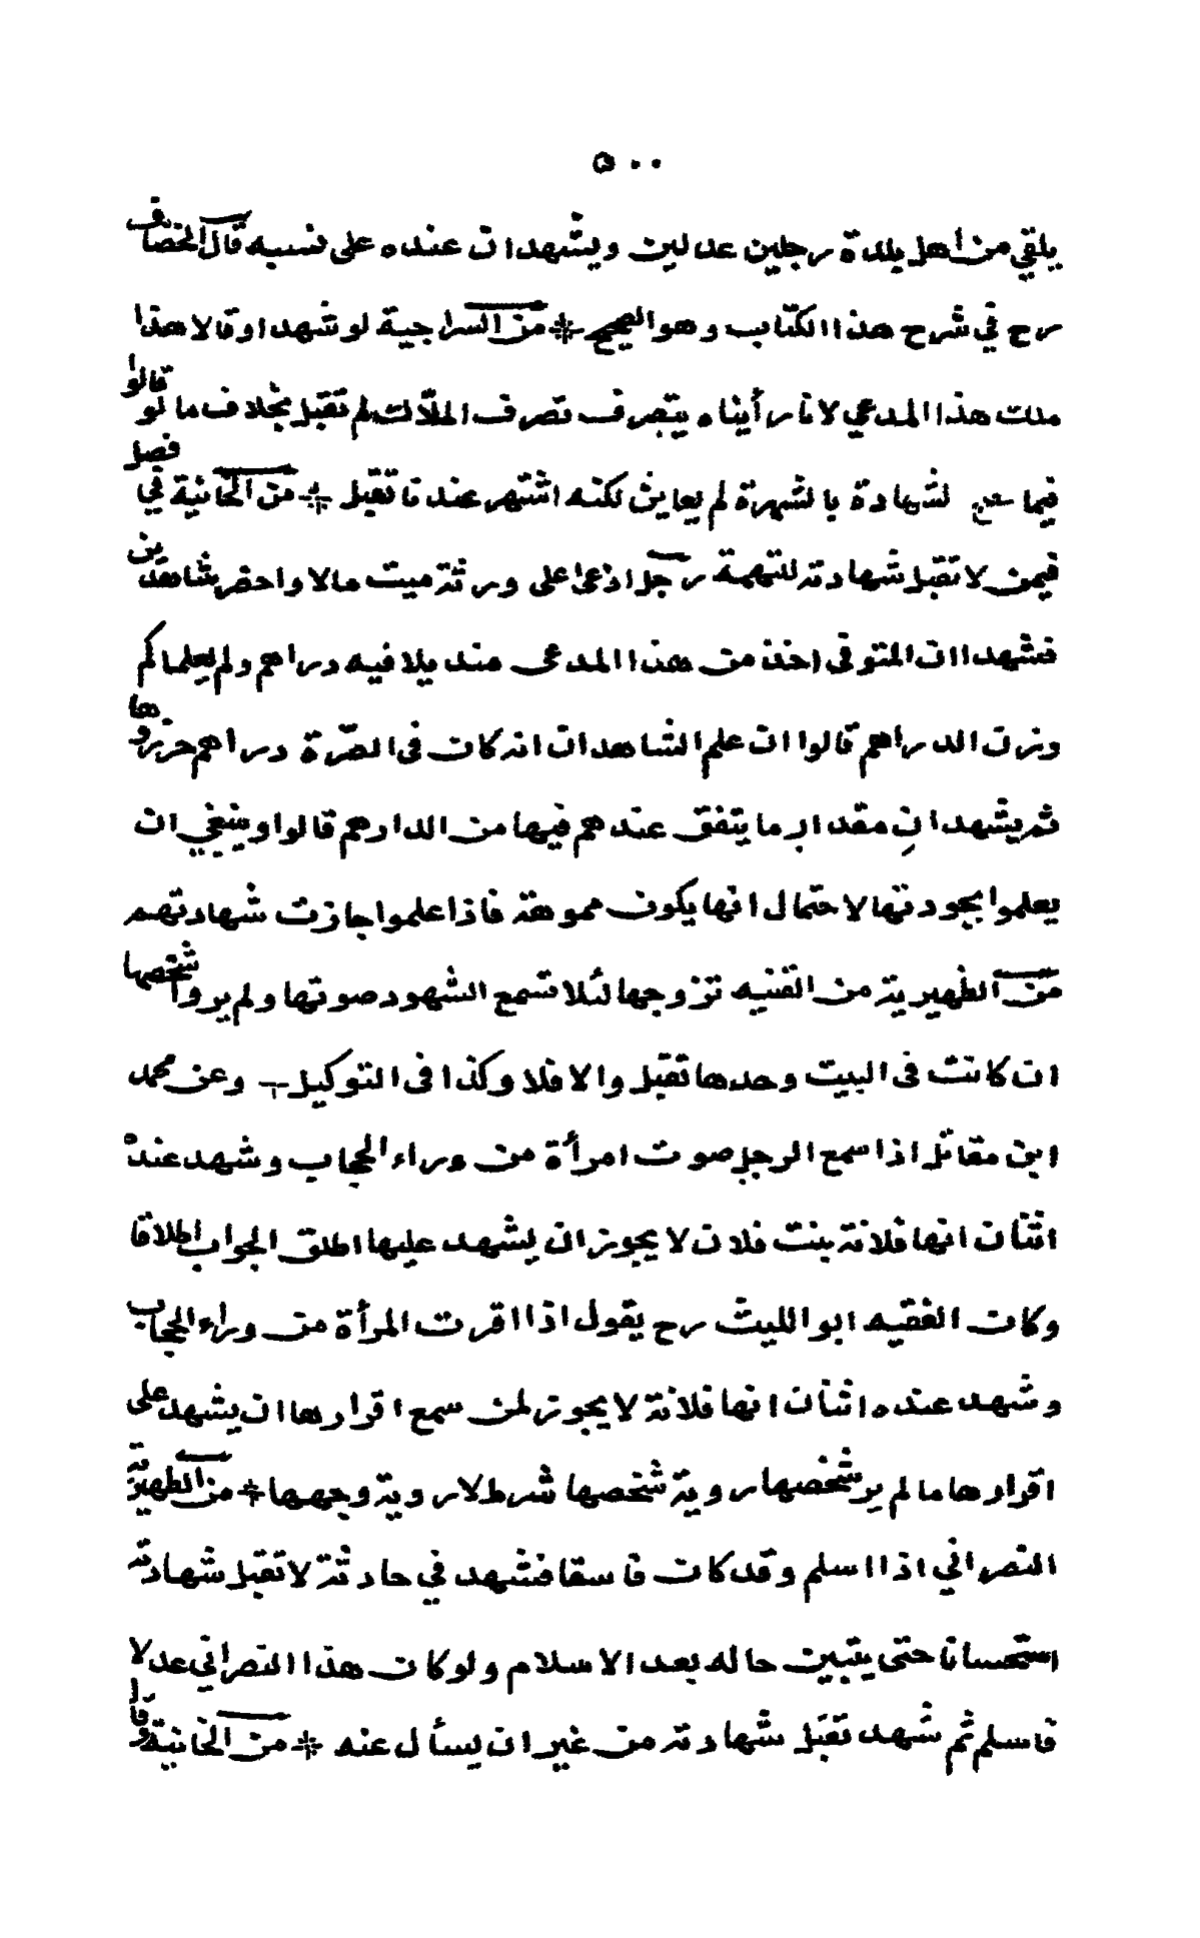 ٥٠٠
يلقي من أهل بلدة رجلين عدلين ويشهدان عنده على نسبه قال الخصاف
رح في شرح هذا الكتاب وهو الصحيح * من السراجية لو شهدا وقالا هذا
ملك هذا المدعي لانا رأيناه يتصرف تصرف الملّاك لم تقبل بخلاف ما لو قالوا
فيما لشهادة بالشهرة لم يعاين لكنه اشتهر عندنا تقبل * من الخانية في فصل
فيمن لا تقبل شهادته للتهمة رجل ادعى على ورثة ميت مالا واحضر شاهدين
فشهدا ان المتوفى اخذ من هذا المدعى منديلا فيه دراهم ولم يعلما كم
وزن الدراهم قالوا ان علم الشاهدان انه كان فى الصّرة دراهم حزروها
ثم يشهدانِ مقدار ما يتفق عندهم فيها من الدارهم قالوا وينبغي ان
يعلموا بجودتها لاحتمال انها يكون مموهة فاذا علموا جازت شهادتهم
من الظهيرية من القنيه تزوجها لئلا تسمع الشهود صوتها ولم يروا شخصها
ان كانت فى البيت وحدها تقبل والا فلا وكذا فى التوكيل وعن محمد
ابن مقاتل اذا سمع الرجل صوت امرأة من وراء الحجاب وشهد عنده
اثنان انها فلانة بنت فلان لا يجوز ان يشهد عليها اطلق الجواب اطلاقا
وكان الفقيه ابو الليث رح يقول اذا اقرت المرأة من وراء الحجاب
وشهد عنده اثنان انها فلانة لا يجوز لمن سمع اقرارها ان يشهد على
اقرارها ما لم ير شخصها روية شخصها شرط لا روية وجهها * من الظهيرية
النصراني اذا اسلم وقد كان فاسقا فشهد في حادثة لا تقبل شهادته
استحسانا حتى يتبين حاله بعد الاسلام ولو كان هذا النصراني عدلا
فاسلم ثم شهد تقبل شهادته من غير ان يسأل عنه * من الخانية وقال